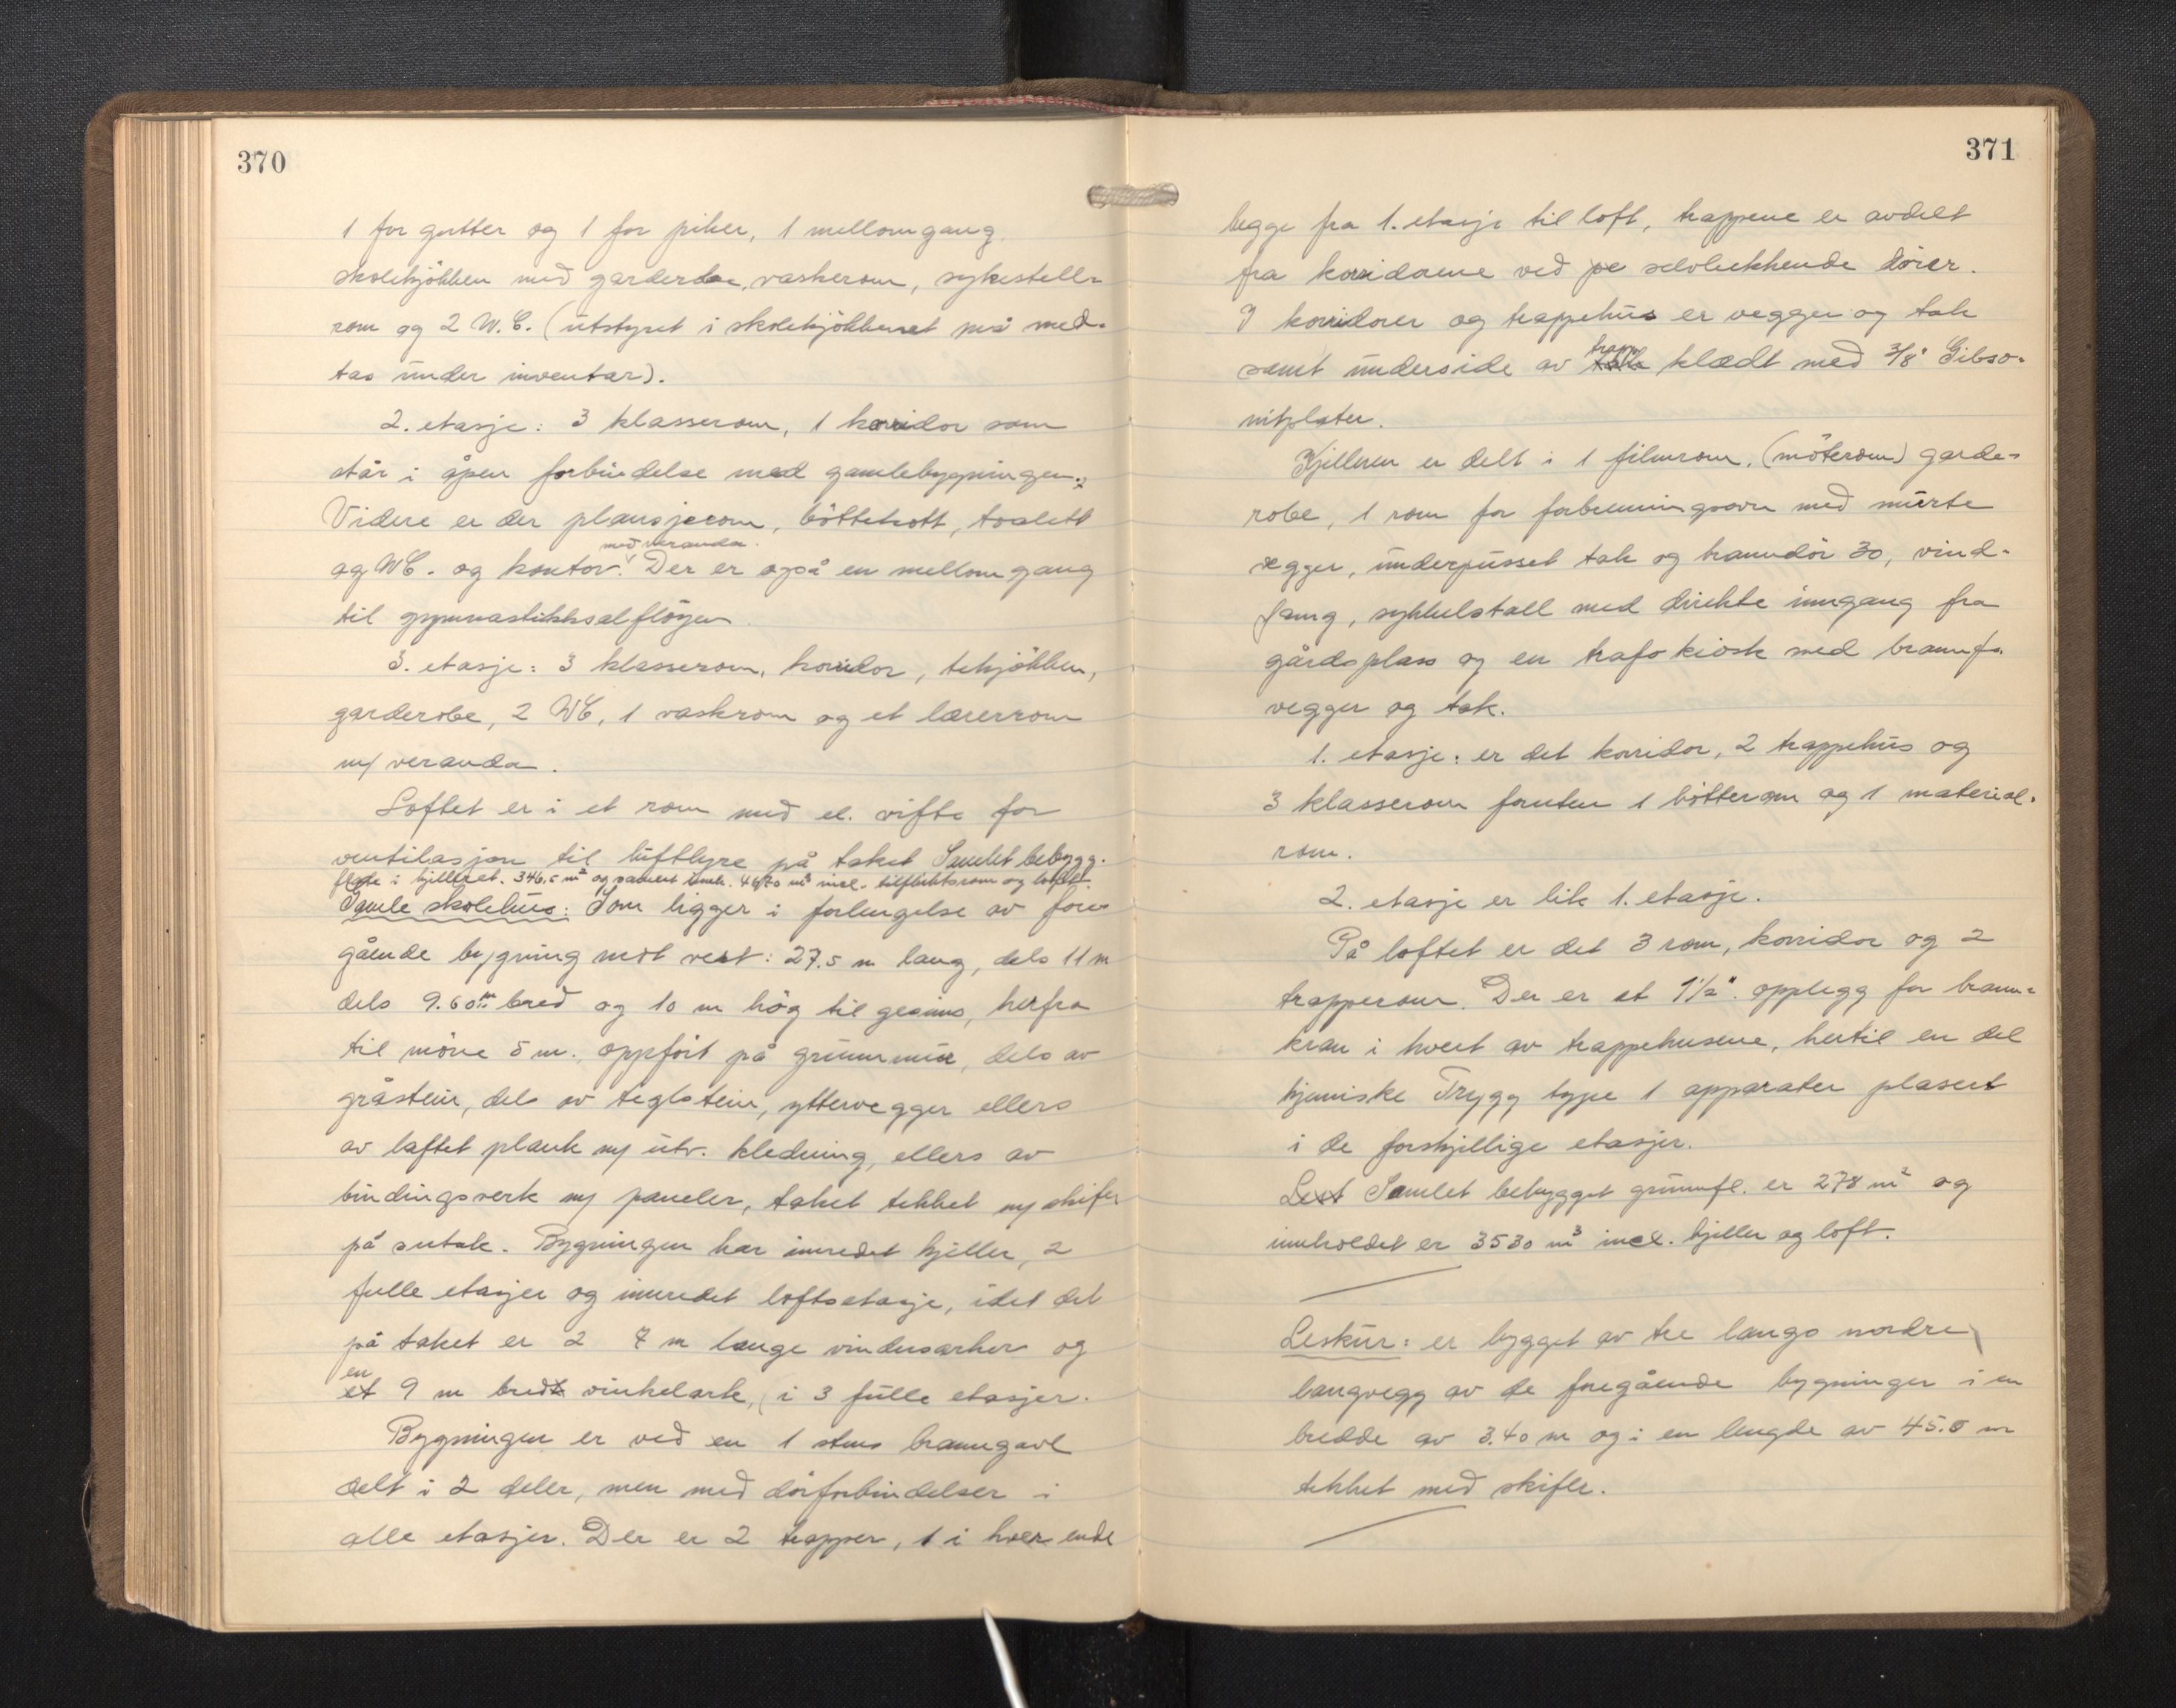 370
1 for gutter og 1 for piker, 1 mellomgang
skolekjökken med garderobe, vaskerom, sykestell-
rom og 2 W.C. (utstyret i skolekjökkenet må med-
tas under inventar).
2. etasje: 3 klasserom, 1 korridor som
står i åpen forbindelse med gamlebygningen.
Videre er der plansjerom, böttekott, toalett
med veranda.
og WC. og kontor. Der er også en mellomgang
til gymnastikksalflöyen.
3. etasje: 3 klasserom, korridor, tekjökken,
garderobe, 2 WC, 1 vaskrom og et lærerrom
m/ veranda.
Loftet er i et rom med el. vifte for
ventilasjon til luftlyre på taket Samlet bebygg.
flate i kjelleret. 346,5 m² og samlet innh. 4670 m³ incl. tilfluktsrom og loftet.
Gamle skolehus: Som ligger i forlengelse av fore-
gående bygning mot vest: 27.5 m lang, dels 11 m
dels 9.60 m bred og 10 m hög til gesims, herfra
til möne 5 m., oppfört på grunnmur, dels av
gråstein, dels av teglstein, yttervegger ellers
av laftet plank m/ utv. kledning, ellers av
bindingsverk m/ paneler, taket tekket m/ skifer
på sutak. Bygningen har innredet kjeller, 2
fulle etasjer og innredet loftsetasje, idet det
på taket er 2 7 m lange vindusarker og
en
et 9 m bredt vinkelark, i 3 fulle etasjer.
Bygningen er ved en 1 stens branngavl
delt i 2 deler, men med dörforbindelser i
alle etasjer. Der er 2 trapper, 1 i hver ende
371
begge fra 1. etasje til loft, trappene er avdelt
fra korridorene ved selvlukkende dörer.
I korridorer og trappehus er vegger og tak
trapp
samt underside av klædt med 3/8" Gibso-
nitplater.
Kjelleren er delt i 1 filmrom, (möterom) garde-
robe, 1 rom for forbrenningsovn med murte
vegger, underpusset tak og branndör 30, vind-
fang, sykkelstall med direkte inngang fra
gårdsplass og en trafokiosk med brannf.
vegger og tak.
1. etasje: er det korridor, 2 trappehus og
3 klasserom foruten 1 bötterom og 1 material-
rom.
2. etasje er lik 1. etasje.
På loftet er det 3 rom, korridor og 2
trapperom. Der er et 1 1/2" opplegg for brann-
kran i hvert av trappehusene, hertil en del
kjemiske Trygg type 1 apparater plasert
i de forskjellige etasjer.
Lest Samlet bebygget grunnfl. er 278 m² og
innholdet er 3530 m³ incl. kjeller og loft.
Leskur: er bygget av tre langs nordre
langvegg av de foregående bygninger i en
bredde av 3.40 m og i en lengde av 45.0 m
tekket med skifer.